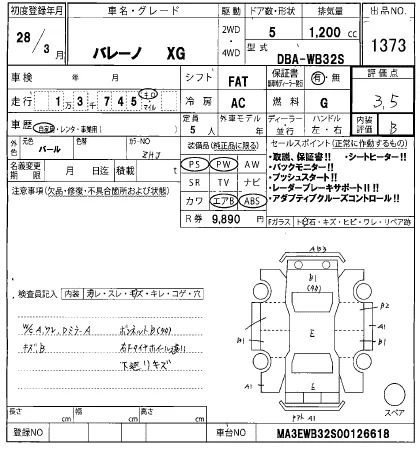 初度登録年月 車名・グレード 駆動 ドア数・形状 排気量 出品NO.
28/3月 バレーノ XG 2WD・4WD 5 1,200 cc 1373
型式 DBA-WB32S
車検 年 月 シフト FAT 保証書 有・無 評価点
走行 1万3千745 キロ・マイル 冷房 AC 燃料 G 3.5
車歴 自家用・レンタ・事業用( ) 定員 5人 外車モデル 年 ディーラー・並行 ハンドル 左・右 内装評価 B
外色 元色 パール 色替 カラーNO ZHJ
装備品(純正品に限る) セールスポイント(正常に作動するもの)
名義変更期限 月 日迄 積載 t
PS PW AW
SR TV ナビ
カワ エアB ABS
R券 9,890 円
・取説、保証書!! ・シートヒーター!!
・バックモニター!!
・プッシュスタート!!
・レーダーブレーキサポートⅡ!!
・アダプティブクルーズコントロール!!
注意事項(欠品・修復・不具合箇所および状態)
Fガラス ト石・キズ・ヒビ・ワレ・リペア跡
検査員記入 内装 汚レ・スレ・キズ・キレ・コゲ・穴
キズB
下廻リキズ
AB3
B1
B2
A1
B1
A1
E
E
A1
スペア
長さ cm 幅 cm 高さ cm
登録NO 車台NO MA3EWB32S00126618